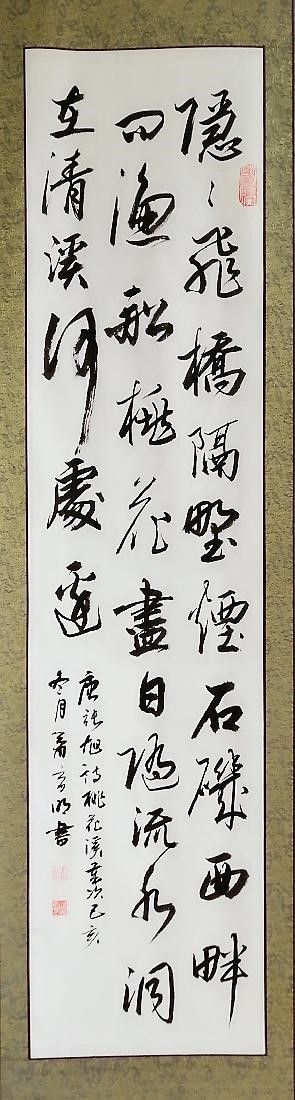 隱〻飛橋隔野煙石磯西畔
問漁船桃花盡日隨流水洞
在清溪何處邊
唐張旭詩桃花溪歲次己亥
冬月 書